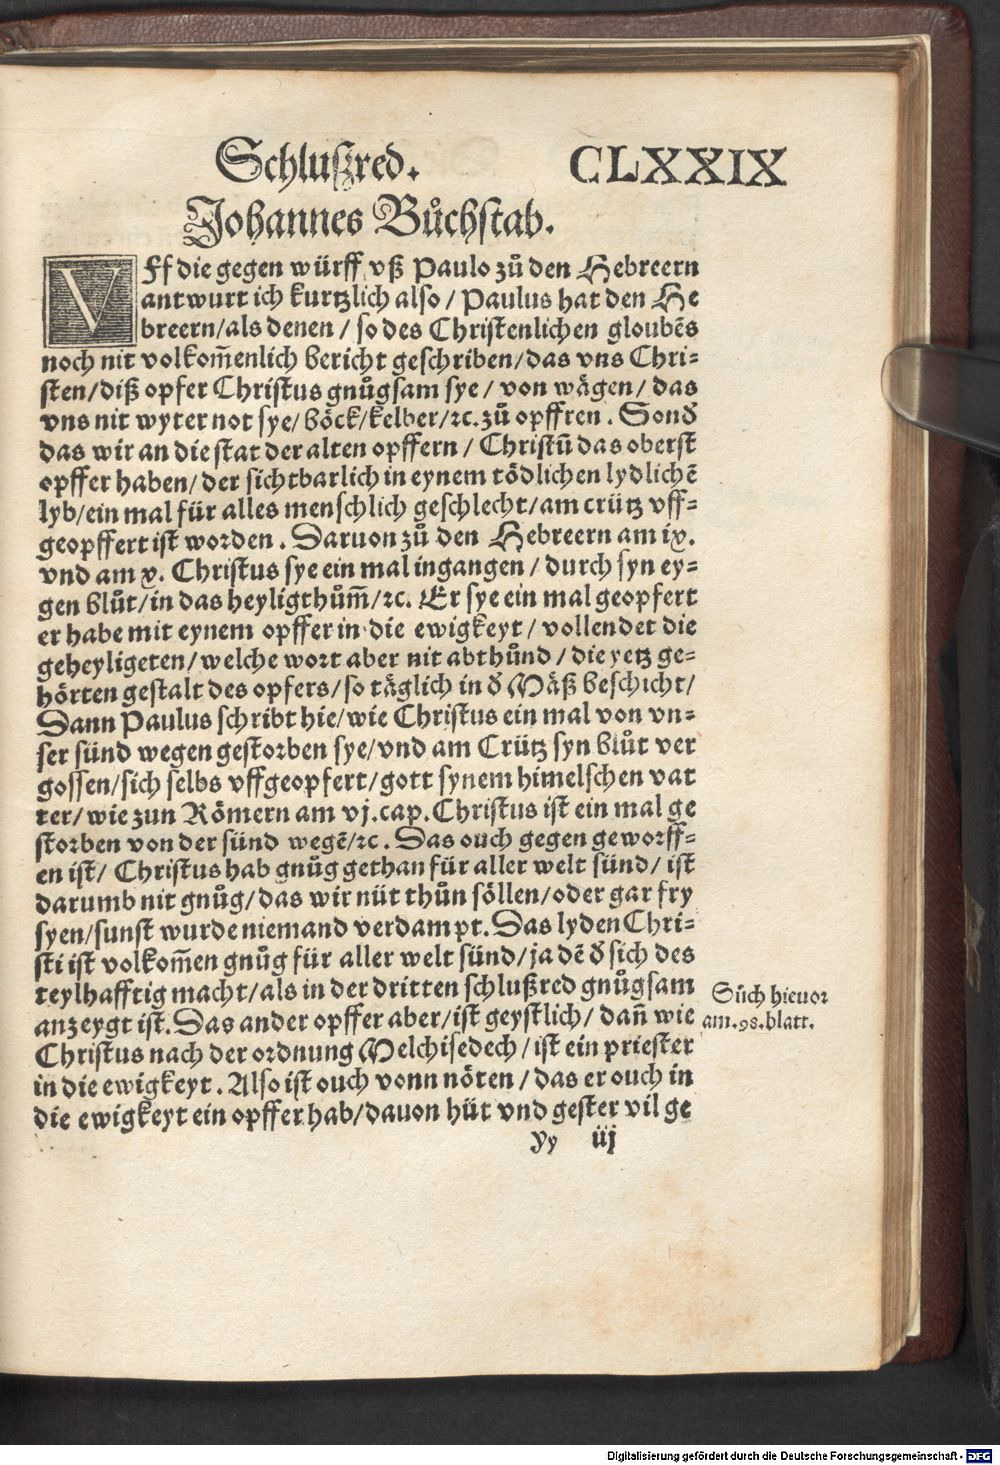 Schlußred. CLXXIX
Johannes Bůchstab.
VFf die gegen würff vß Paulo zů den Hebreern
antwurt ich kurtzlich also / Paulus hat den He
breern / als denen / so des Christenlichen gloubēs
noch nit volkom̄enlich bericht geschriben / das vns Chri-
sten / diß opfer Christus gnůgsam sye / von wägen / das
vns nit wyter not sye / böck / kelber / ꝛc. zů opffren. Sonđ
das wir an die stat der alten opffern / Christū das oberst
opffer haben / der sichtbarlich in eynem tödlichen lydlichē
lyb / ein mal für alles menschlich geschlecht / am crütz vff-
geopffert ist worden. Daruon zů den Hebreern am ix.
vnd am x. Christus sye ein mal ingangen / durch syn ey-
gen blůt / in das heyligthům̄ / ꝛc. Er sye ein mal geopfert
er habe mit eynem opffer in die ewigkeyt / vollendet die
geheyligeten / welche wort aber nit abthůnd / die yetz ge-
hörten gestalt des opfers / so täglich in đ Mäß beschicht /
Dann Paulus schribt hie / wie Christus ein mal von vn-
ser sünd wegen gestorben sye / vnd am Crütz syn blůt ver
gossen / sich selbs vffgeopfert / gott synem himelschen vat
ter / wie zun Römern am vj. cap. Christus ist ein mal ge
storben von der sünd wegē / ꝛc. Das ouch gegen geworff-
en ist / Christus hab gnůg gethan für aller welt sünd / ist
darumb nit gnůg / das wir nüt thůn söllen / oder gar fry
syen / sunst wurde niemand verdampt. Das lyden Chri-
sti ist volkom̄en gnůg für aller welt sünd / ja dē đ sich des
teylhafftig macht / als in der dritten schlußred gnůgsam
anzeygt ist. Das ander opffer aber / ist geystlich / dañ wie
Christus nach der ordnung Melchisedech / ist ein priester
in die ewigkeyt. Also ist ouch vonn nöten / das er ouch in
die ewigkeyt ein opffer hab / dauon hüt vnd gester vil ge
Sůch hieuor
am. 98. blatt.
Yy iij
Digitalisierung gefördert durch die Deutsche Forschungsgemeinschaft - DFG